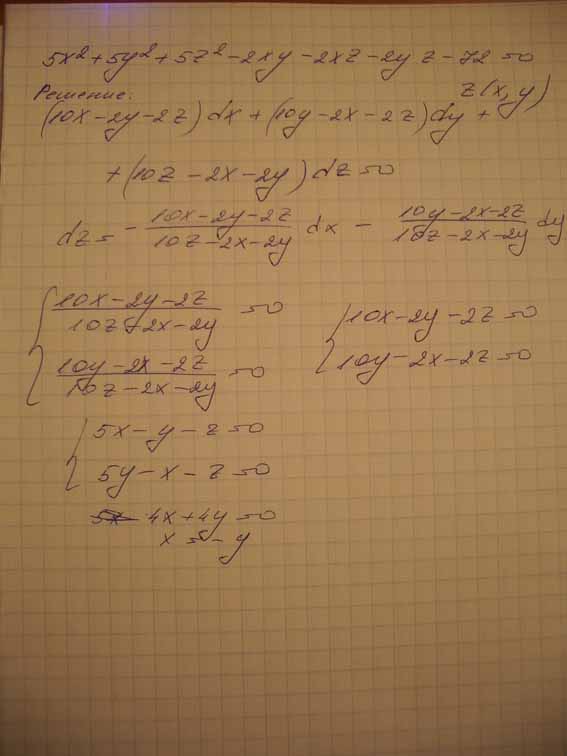 5x² + 5y² + 5z² - 2xy - 2xz - 2yz - 72 = 0
z(x, y)
Решение:
(10x - 2y - 2z) dx + (10y - 2x - 2z) dy +
+ (10z - 2x - 2y) dz = 0
dz = - \frac{10x - 2y - 2z}{10z - 2x - 2y} dx - \frac{10y - 2x - 2z}{10z - 2x - 2y} dy
{ \frac{10x - 2y - 2z}{10z - 2x - 2y} = 0
\frac{10y - 2x - 2z}{10z - 2x - 2y} = 0
{ 10x - 2y - 2z = 0
10y - 2x - 2z = 0
{ 5x - y - z = 0
5y - x - z = 0
4x + 4y = 0
x = - y